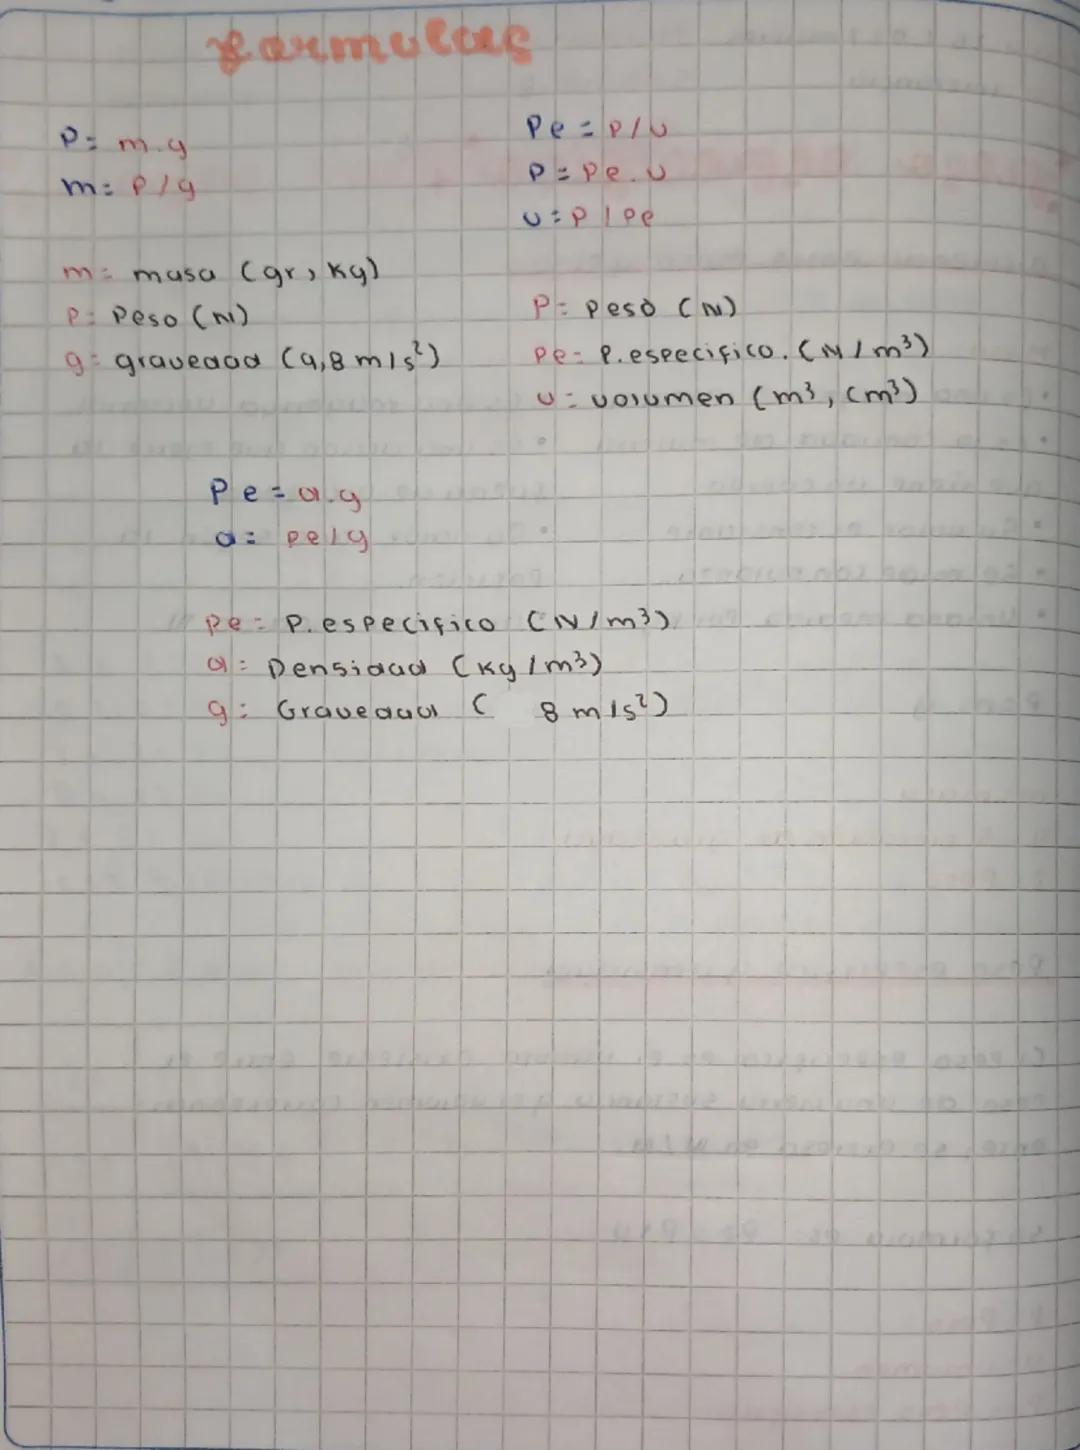 Formulas
P= m.g
m= P/g
m= masa (gr, kg)
P= Peso (N)
g= gravedad (9,8 m/s²)
Pe = P/v
P= Pe.v
v= P/Pe
P= Peso (N)
Pe= P.especifico. (N/m³)
v= volumen (m³, cm³)
Pe = d.g
d= pe/g
pe= P.especifico (N/m³)
d= Densidad (kg/m³)
g= Gravedad ( 8 m/s²)